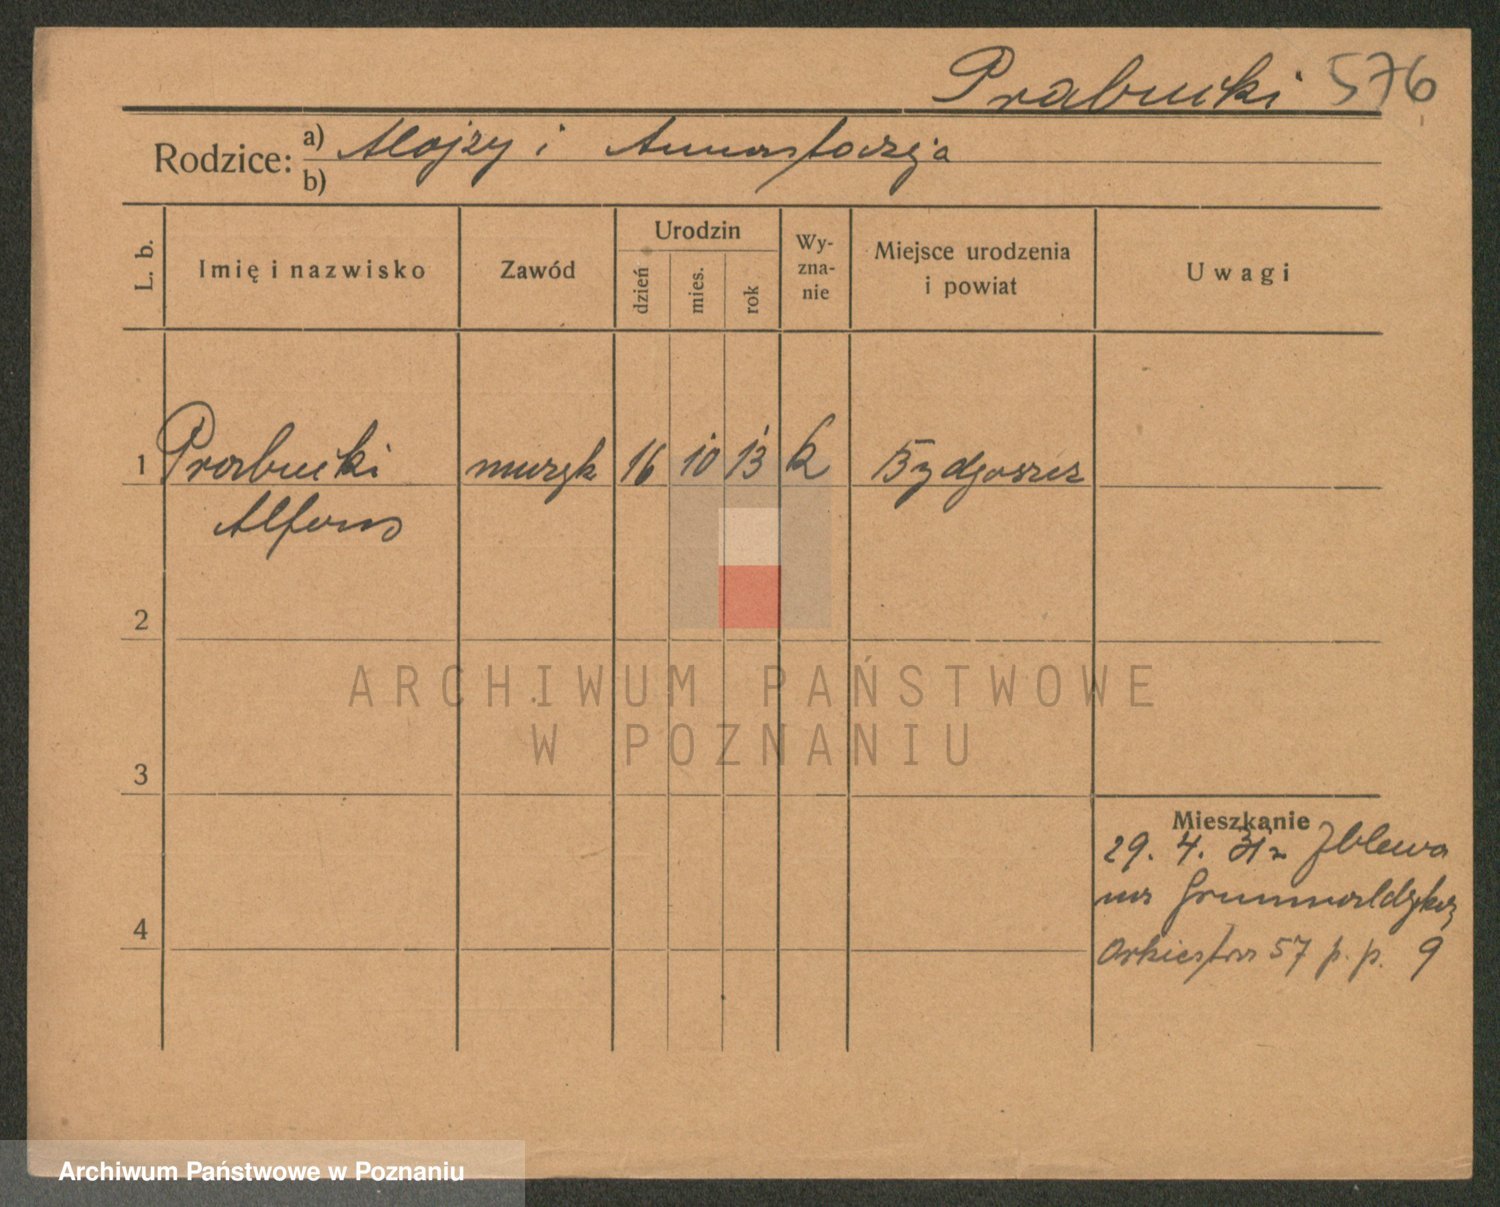 Prabucki 576
Rodzice: a) Alojzy i Anastazja
b)
L. b.
Imię i nazwisko
Zawód
Urodzin
dzień
mies.
rok
Wy-
zna-
nie
Miejsce urodzenia
i powiat
Uwagi
1 Prabucki muzyk 16 10 13 k Bydgoszcz
Alfons
2
3
4
Mieszkanie
29. 4. 31 z Iława
na Grunwaldzką
Orkiestra 57 p. p. 9
ARCHIWUM PAŃSTWOWE
W POZNANIU
Archiwum Państwowe w Poznaniu